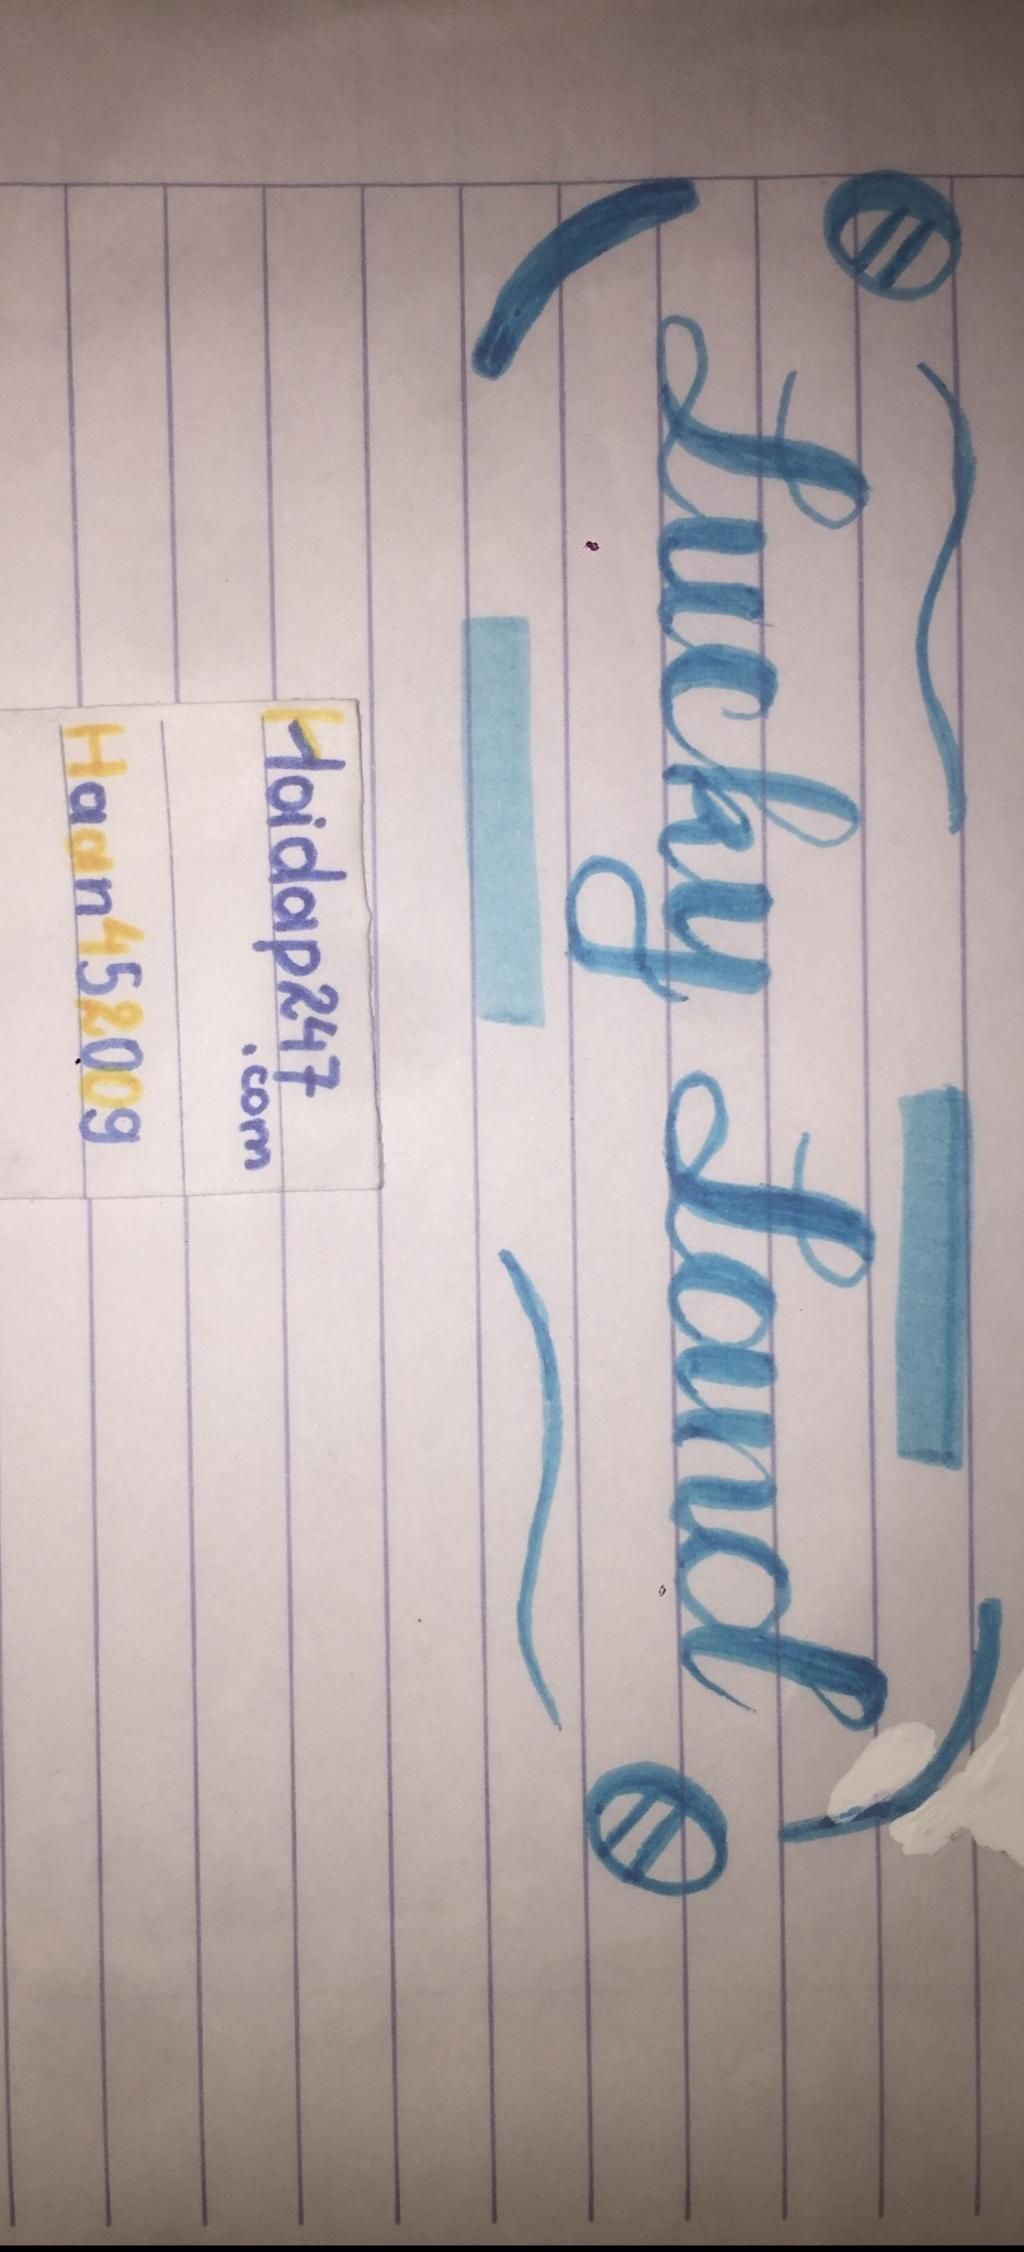 Lucky Land
Hoidap247
.com
Haan452009